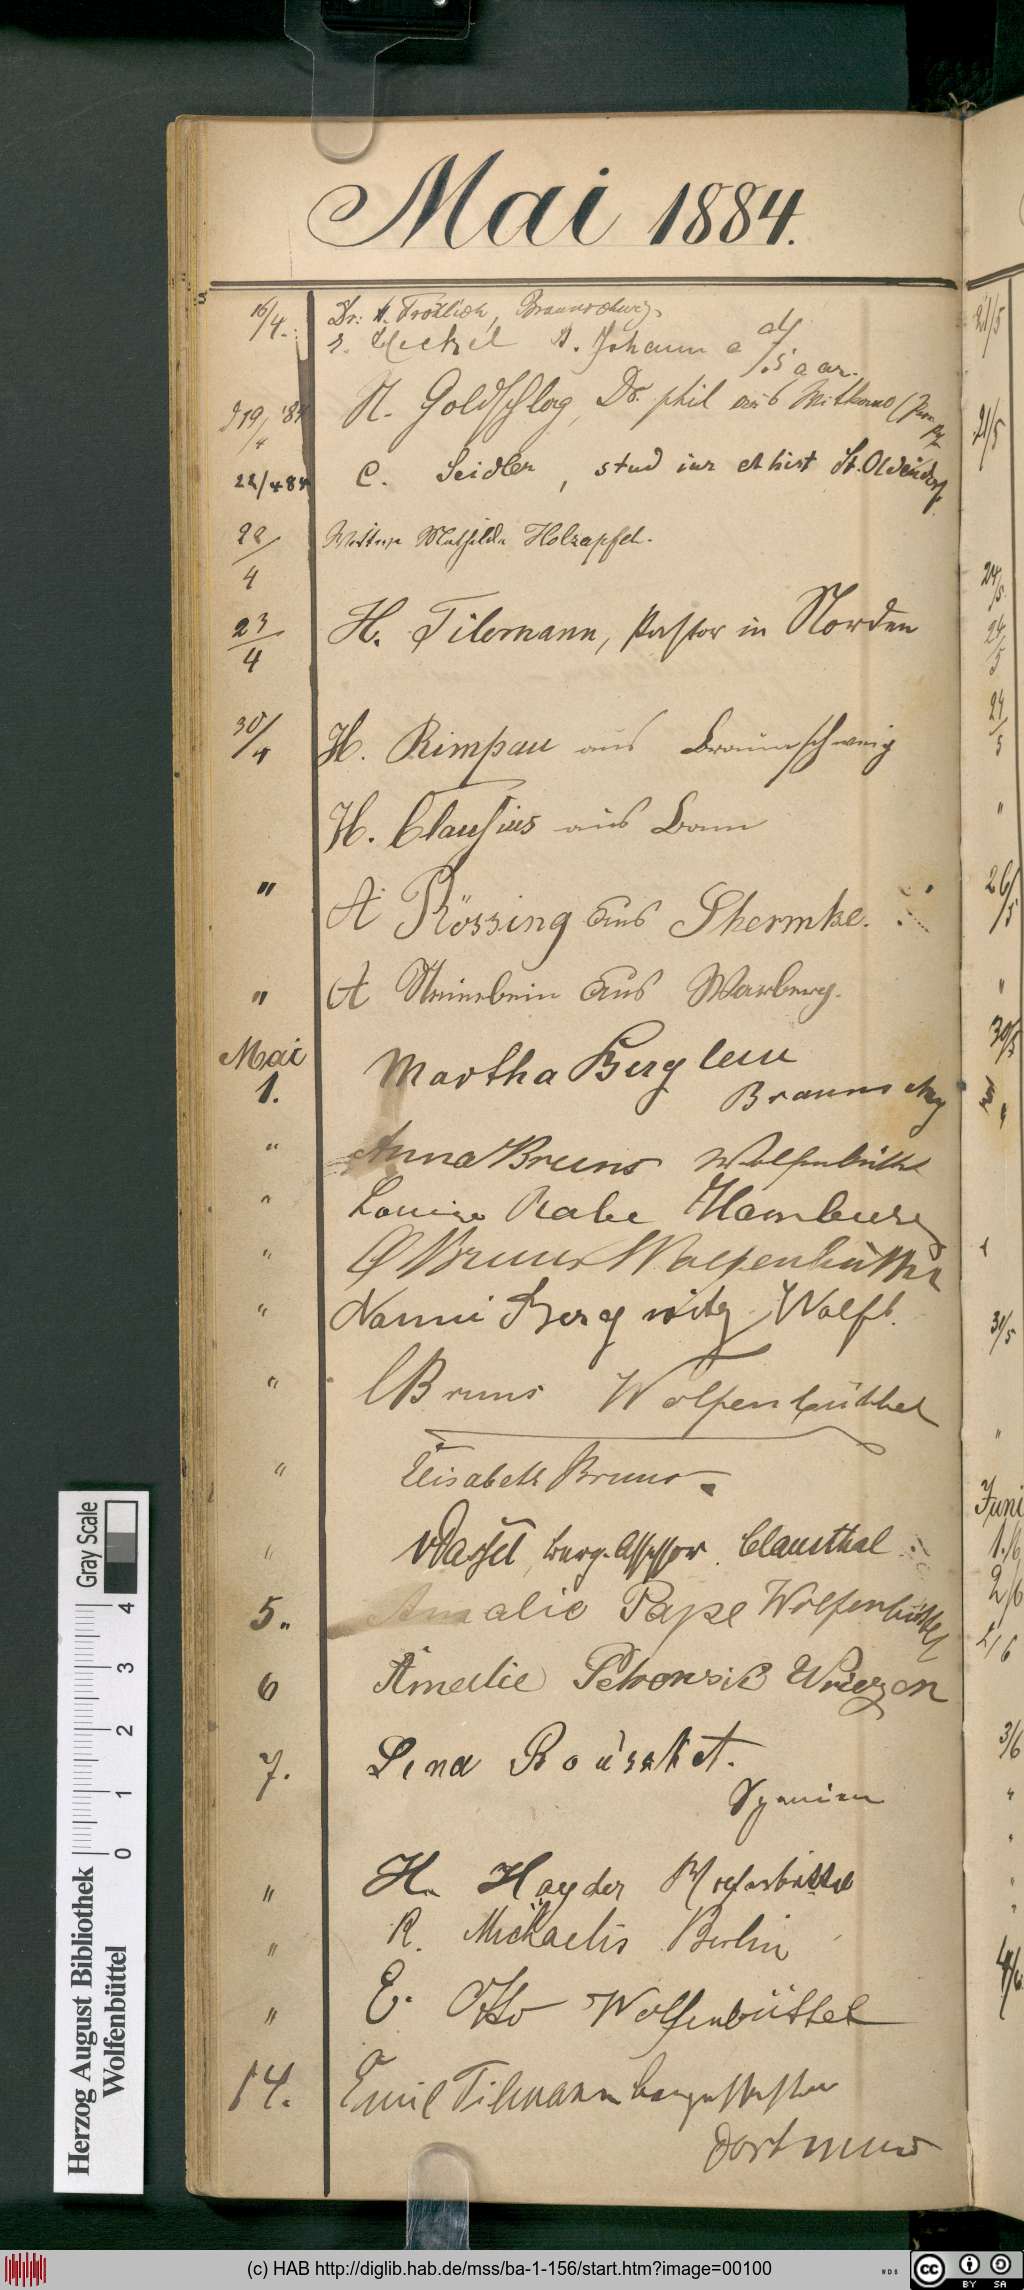 Mai 1884.
16/4. Dr: A. Frölich, Braunschweig.
Heckel St. Johann a/d Saar.
19/4 '84 N. Goldschlag, Dr. phil aus
22/4 84 C. Seidler, stud iur et hist St. Oldendorf
22/4 Mathilde Holzapfel.
23/4 H. Tilemann, Pastor in Norden
30/4 H. Rimpau aus Braunschweig
H. Clausius aus Bonn
" A Rössing aus Shermke.
" A Steinbein aus Warberg.
Mai
1. Martha Berglein
Braunschwg
" Anna Bruns Wolfenbüttel
" Louise Rabe Hamburg
" Bruns Wolfenbüttel
" Nanni Bergwitz Wolfb.
" C Bruns Wolfenbüttel
" Elisabeth Bruns.
" vDassel, Berg-Assessor. Clausthal
5. Amalie Pape Wolfenbüttel
6 Amelie Wriezen
7. Lina
Spanien
" H. Hayder Wolfenbüttel
" R. Michaelis Berlin
" E. Otto Wolfenbüttel
14. Emil Tilmann Bergassessor
Dortmund
21/5
21/5
24/5
24/5
24/5
"
26/5
"
30/5
31/5
"
Juni
1./6
2/6
2/6
3/6
"
"
"
"
4/6
Gray Scale
0 1 2 3 4
Herzog August Bibliothek
Wolfenbüttel
(c) HAB http://diglib.hab.de/mss/ba-1-156/start.htm?image=00100
WDB
CC BY SA